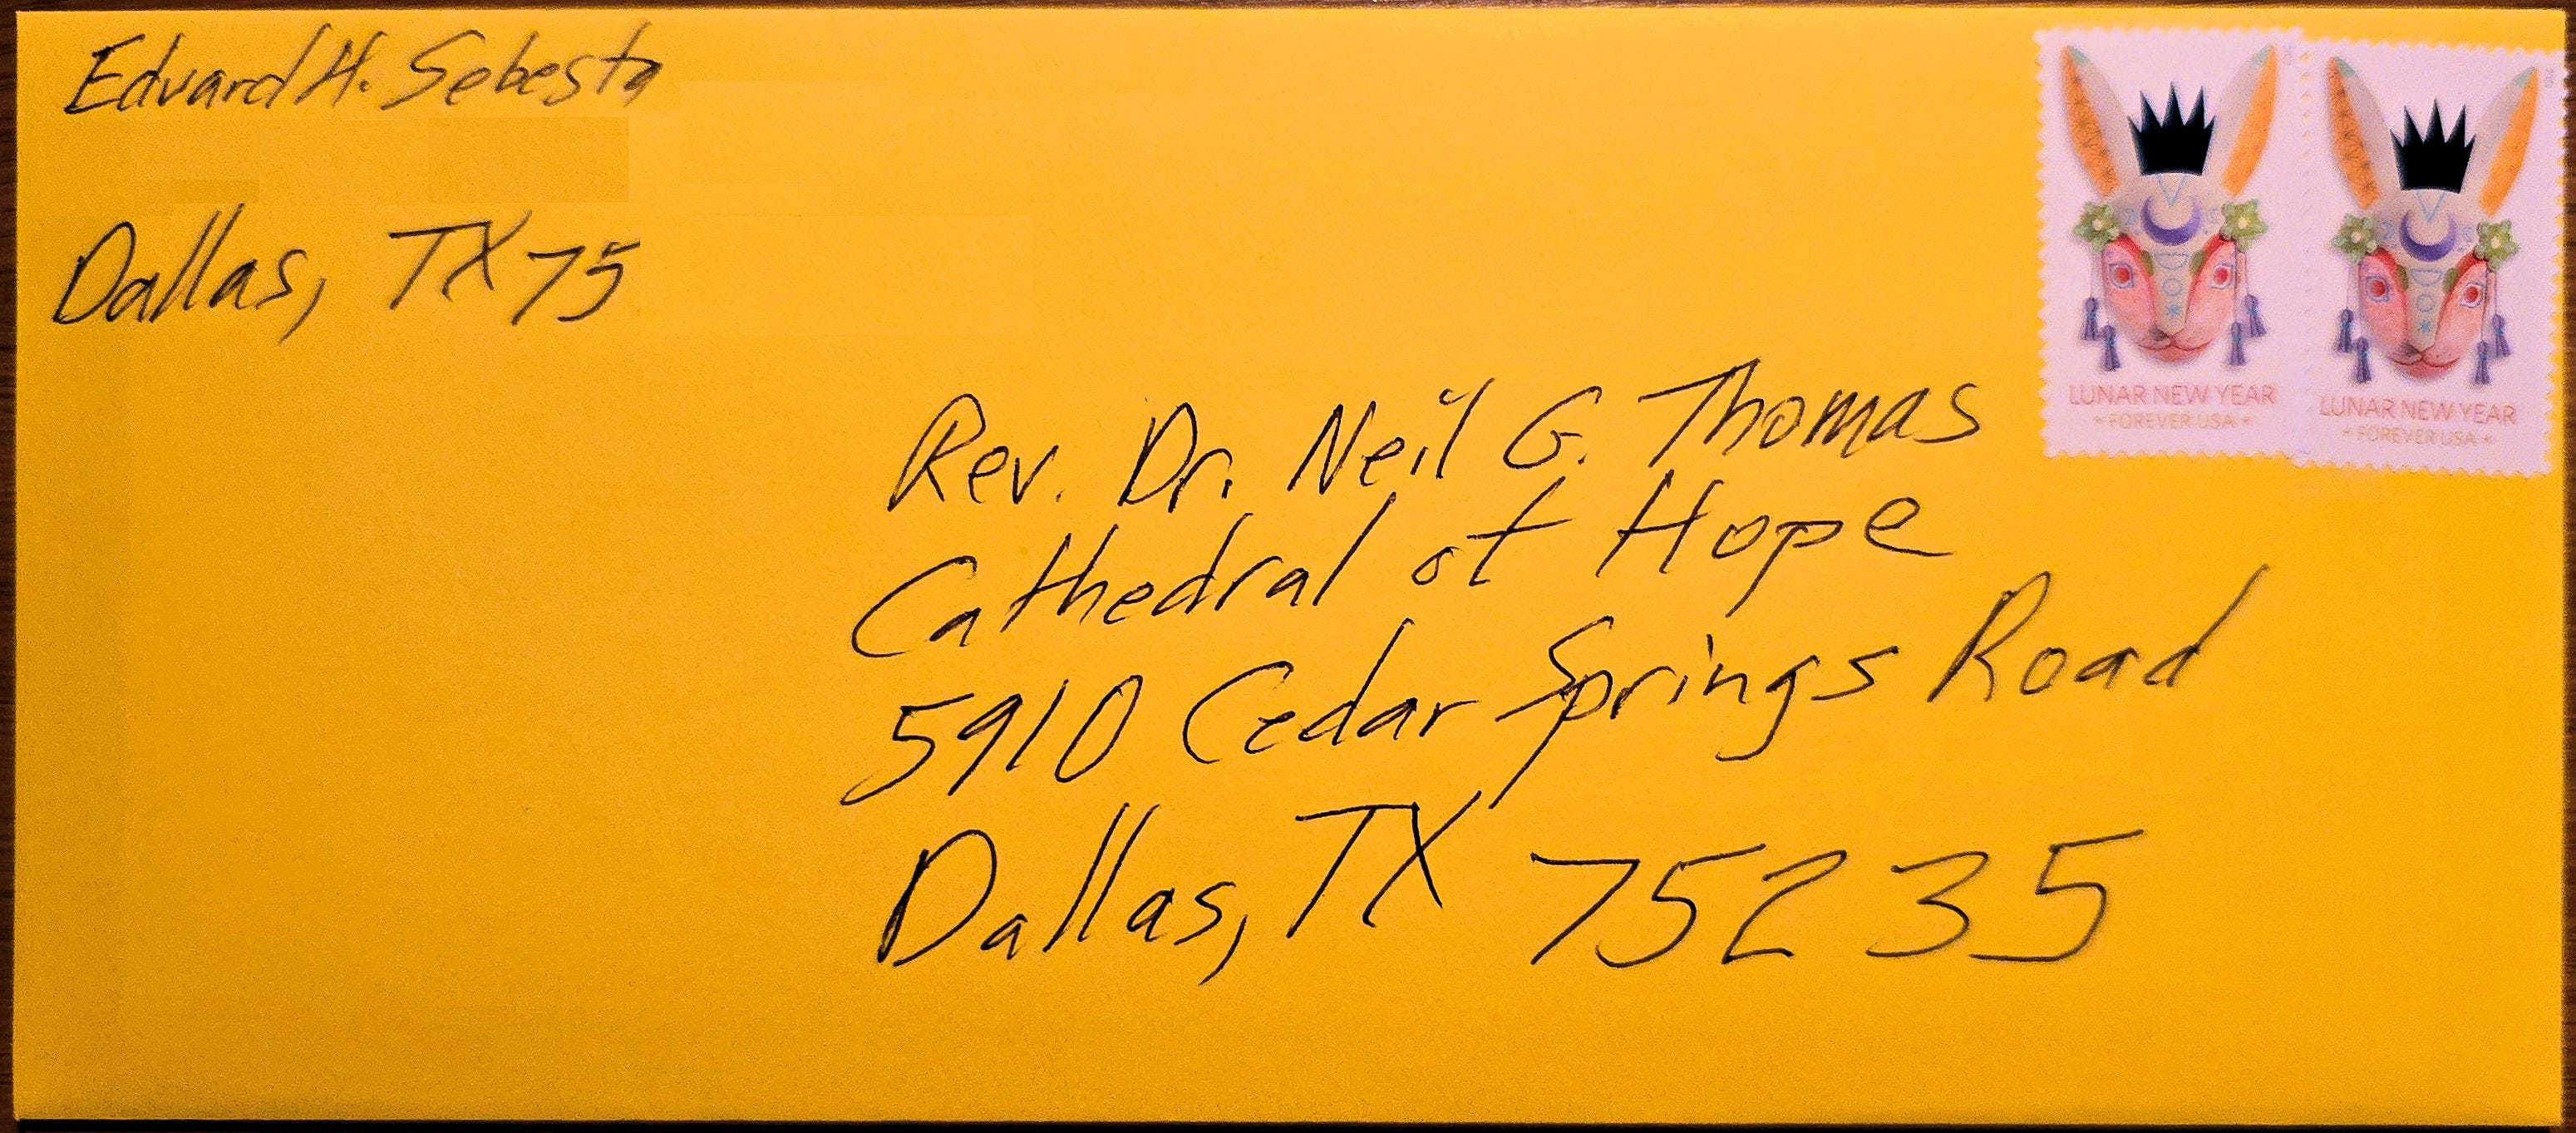 Edward H. Sebesta
Dallas, TX 75
LUNAR NEW YEAR
• FOREVER USA •
LUNAR NEW YEAR
• FOREVER USA •
Rev. Dr. Neil G. Thomas
Cathedral of Hope
5910 Cedar Springs Road
Dallas, TX 75235